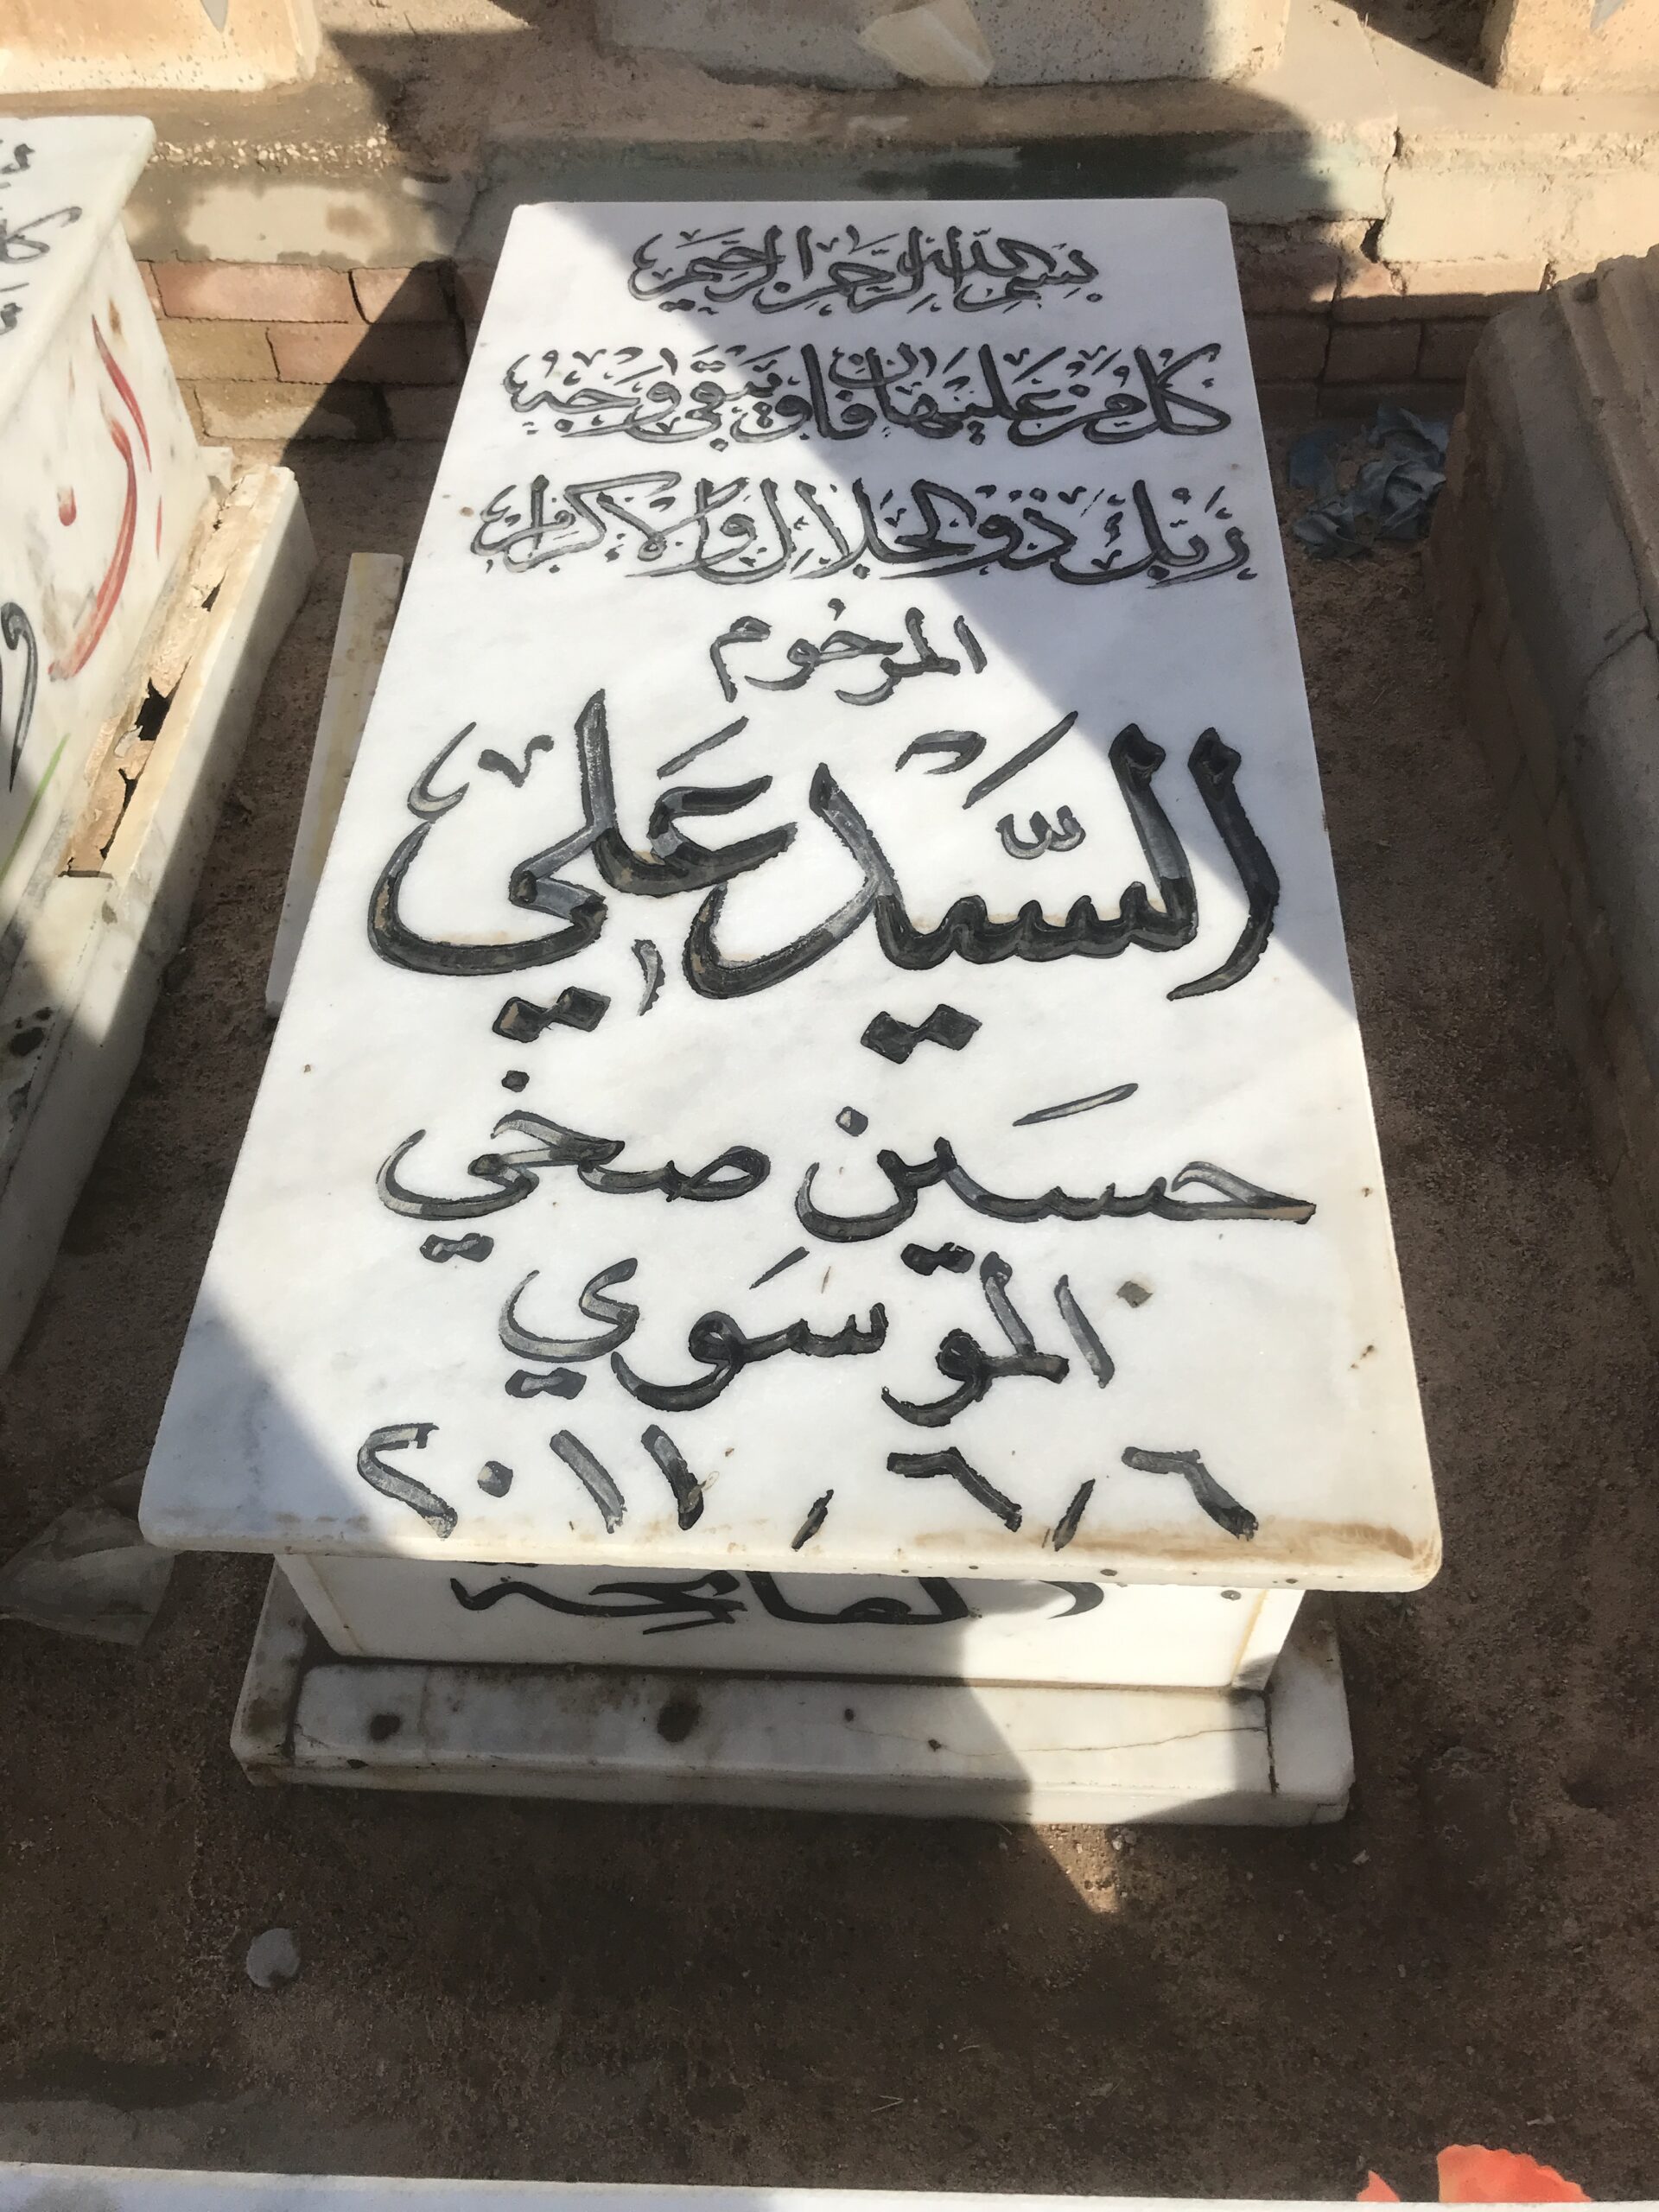 بسم الله الرحمن الرحيم
كل من عليها فان ويبقى وجه
ربك ذو الجلال والاكرام
المرحوم
السيد علي
حسين صخي
الموسوي
٦ / ٦ / ٢٠١١
الفاتحة